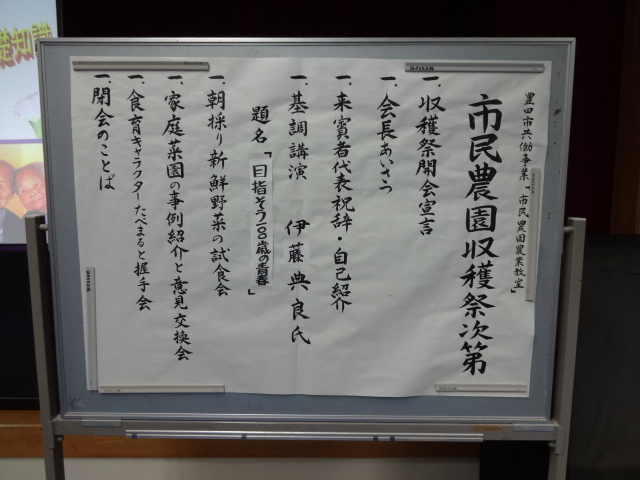 豊田市共働事業「市民農園農業教室」
市民農園収穫祭次第
一.収穫祭開会宣言
一.会長あいさつ
一.来賓者代表祝辞・自己紹介
一.基調講演 伊藤典良氏
題名「目指そう一〇〇歳の青春」
一.朝採り新鮮野菜の試食会
一.家庭菜園の事例紹介と意見交換会
一.食育キャラクターたべまると握手会
一.閉会のことば
礎知識